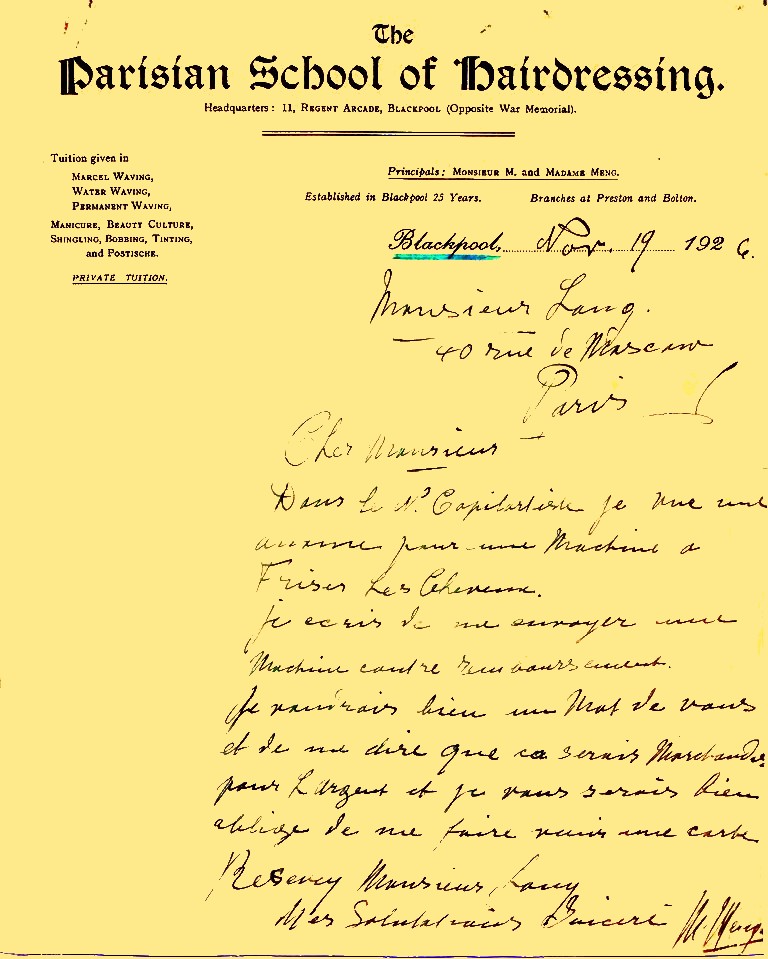 The
Parisian School of Hairdressing.
Headquarters: 11, Regent Arcade, Blackpool (Opposite War Memorial).
Tuition given in
Marcel Waving,
Water Waving,
Permanent Waving,
Manicure, Beauty Culture,
Shingling, Bobbing, Tinting,
and Postische.
PRIVATE TUITION.
Principals: Monsieur M. and Madame Meng.
Established in Blackpool 25 Years. Branches at Preston and Bolton.
Blackpool, Nov. 19 1926.
Monsieur Lang.
40 rue de Moscow
Paris
Cher Monsieur
Dans le N° Capilartiste je vue une
anonne pour une Machine a
Friser Les Cheveux.
je ecris de me envoyer une
Machine contre remboursement.
Je voudrais bien un Mot de vous
et de me dire que ca serais Marchandise
pour L'argent et je vous serais bien
oblige de me faire venir une carte
Resevey Monsieur Lang
Mes Salutations Sinceri M. Meng.